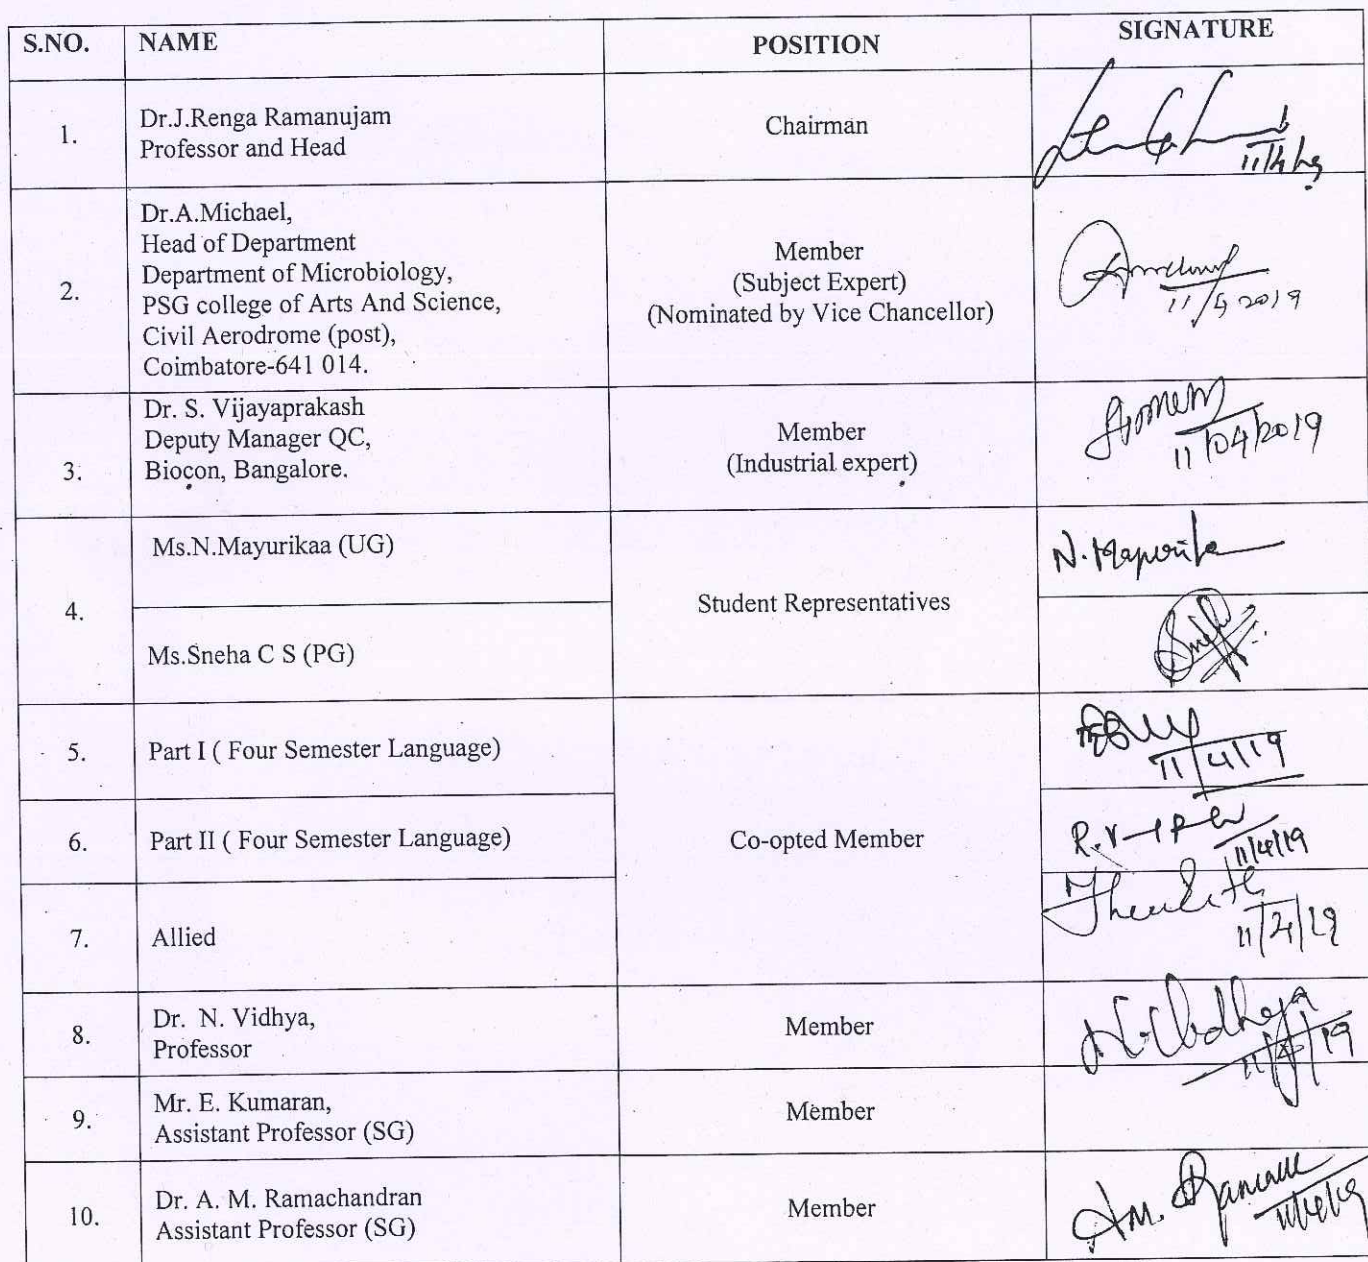 S.NO. NAME POSITION SIGNATURE
1. Dr.J.Renga Ramanujam
Professor and Head
Chairman
11/4/19
2. Dr.A.Michael,
Head of Department
Department of Microbiology,
PSG college of Arts And Science,
Civil Aerodrome (post),
Coimbatore-641 014.
Member
(Subject Expert)
(Nominated by Vice Chancellor)
11/4 2019
3. Dr. S. Vijayaprakash
Deputy Manager QC,
Biocon, Bangalore.
Member
(Industrial expert)
11/04/2019
4. Ms.N.Mayurikaa (UG)
Ms.Sneha C S (PG)
Student Representatives
5. Part I ( Four Semester Language)
11/4/19
6. Part II ( Four Semester Language)
Co-opted Member
11/4/19
7. Allied
11/4/19
8. Dr. N. Vidhya,
Professor
Member
N. Vidhya
11/4/19
9. Mr. E. Kumaran,
Assistant Professor (SG)
Member
10. Dr. A. M. Ramachandran
Assistant Professor (SG)
Member
11/4/19